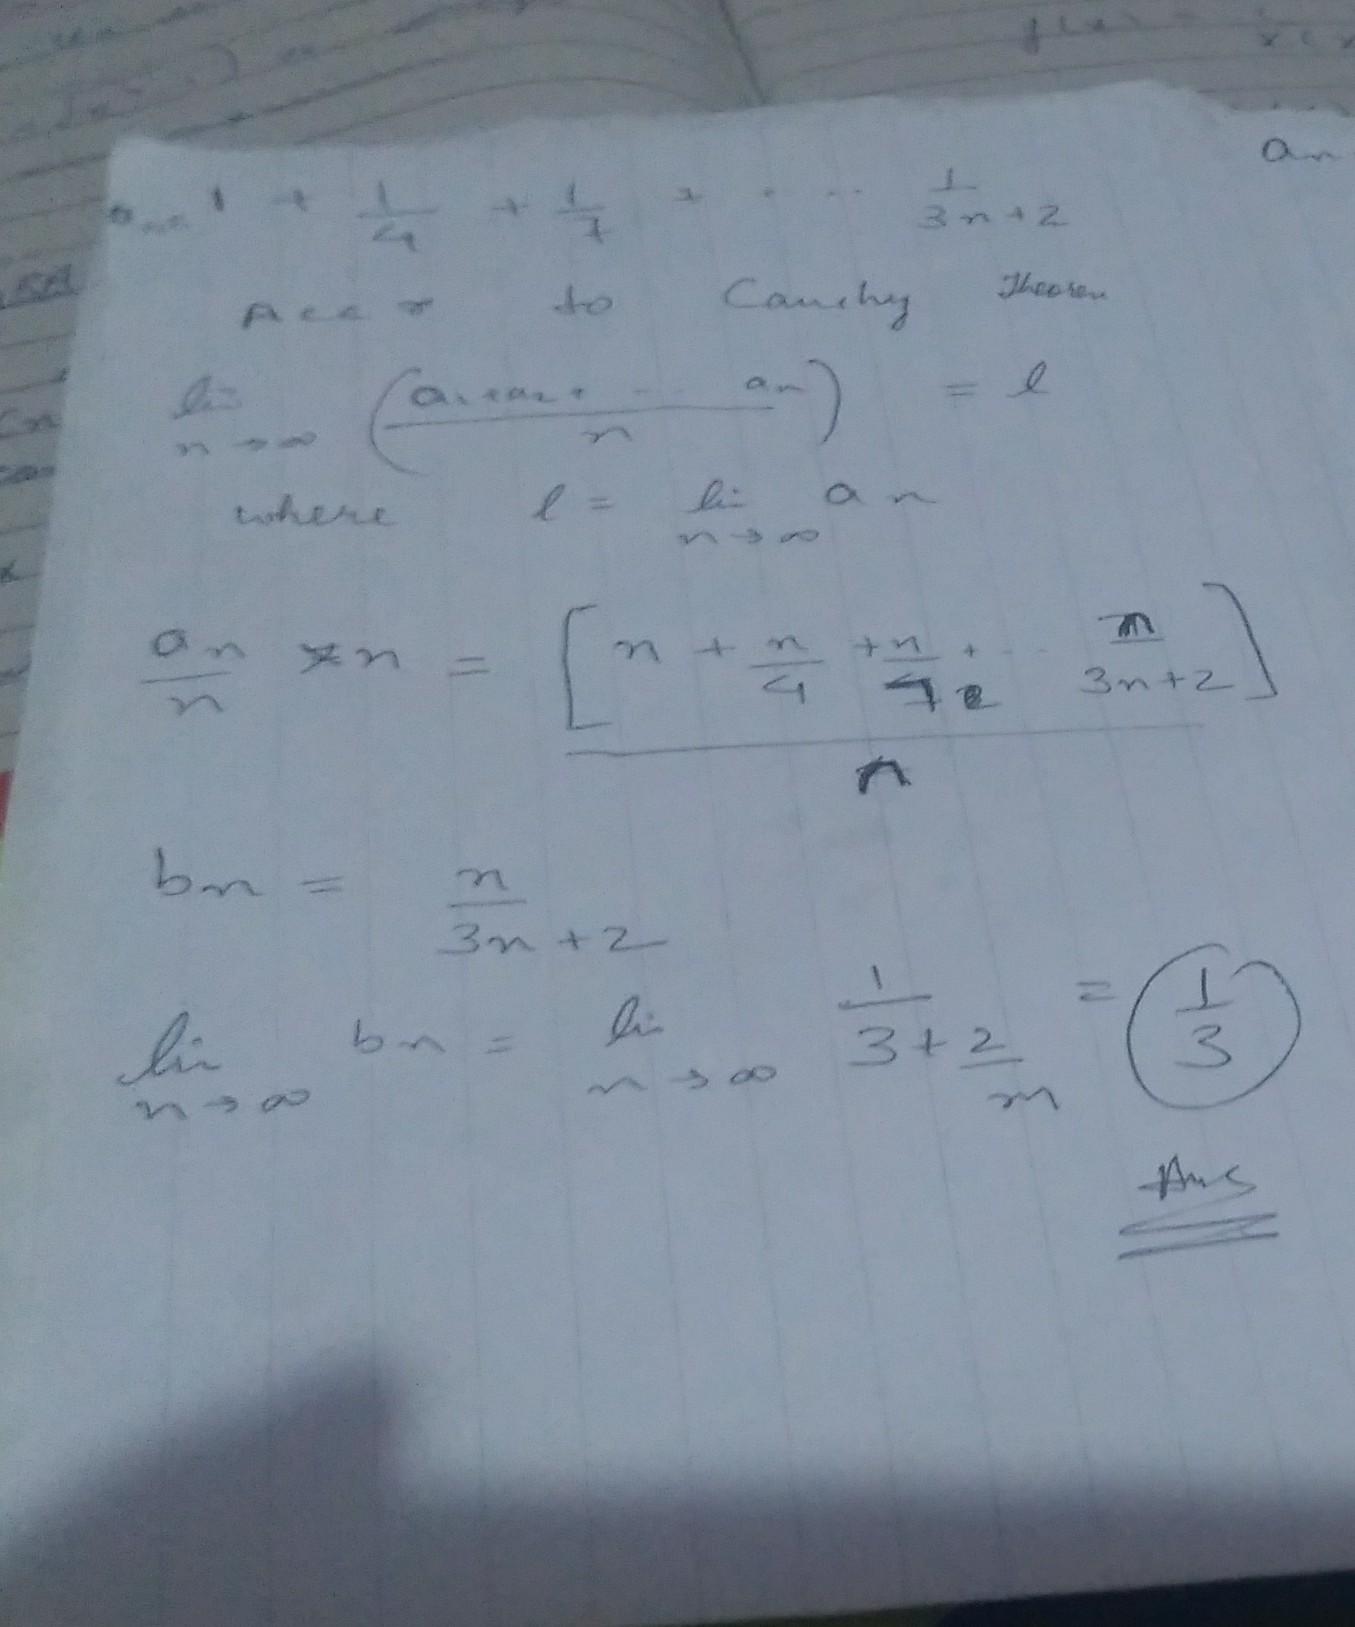 1 + 1/4 + 1/7 + . . . . 1/3n+2
an
Acc r to Cauchy Theorem
li n→∞ (a1+a2+ . . . an / n) = l
where l = li n→∞ an
an/n × n = [n + n/4 + n/7 + . . . n/3n+2] / n
bn = n/3n+2
li n→∞ bn = li n→∞ 1/3+2/n = 1/3
Ans